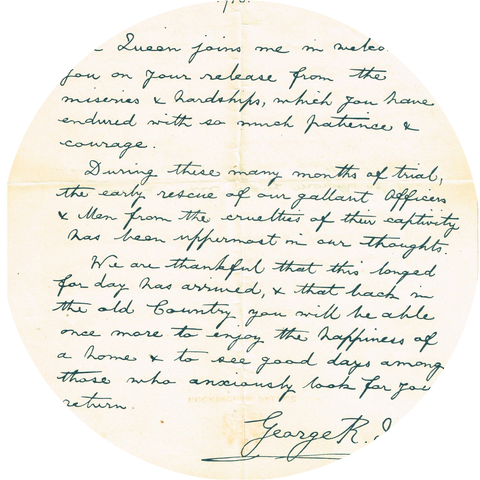 Queen joins me in welco
you on your release from the
miseries & hardships, which you have
endured with so much patience &
courage.
During these many months of trial,
the early rescue of our gallant Officers
& Men from the cruelties of their captivity
has been uppermost in our thoughts.
We are thankful that this longed
for day has arrived, & that back in
the old Country you will be able
once more to enjoy the happiness of
a home & to see good days among
those who anxiously look for you
return.
George R. I